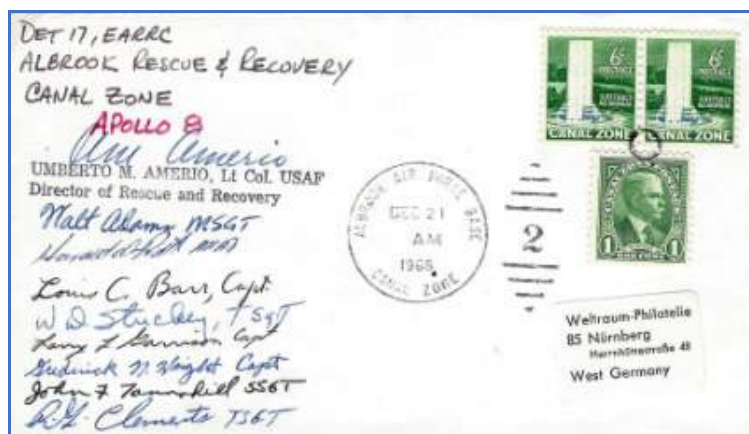 DET 17, EARRC
ALBROOK RESCUE & RECOVERY
CANAL ZONE
APOLLO 8
Amerio
UMBERTO M. AMERIO, Lt Col. USAF
Director of Rescue and Recovery
Walt Adams MSGT
Louis C. Barr, Capt.
W D Stuckey, TSgT
Larry L Garrison Capt
Frederick N. Wright Capt
John F SSGT
R.G. Clements TSGT
ALBROOK AIR FORCE BASE
DEC 21
AM
1968
CANAL ZONE
2
6¢ POSTAGE
GOETHALS MEMORIAL
CANAL ZONE
6¢ POSTAGE
GOETHALS MEMORIAL
CANAL ZONE
CANAL ZONE
1 1
Weltraum-Philatelie
85 Nürnberg
Herrnhüttestraße 48
West Germany